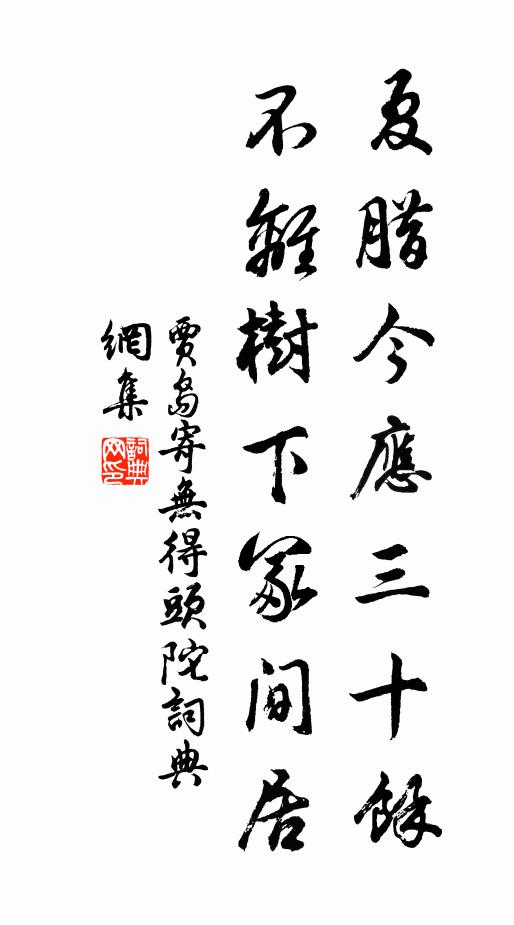 夏腊今應三十餘
不離樹下冢間居
賈島寄無得頭陀詞典
網集
詞典網印